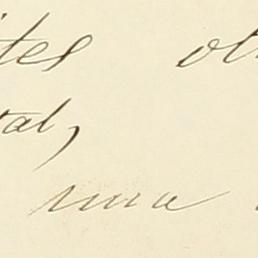 ites ot
tal,
una